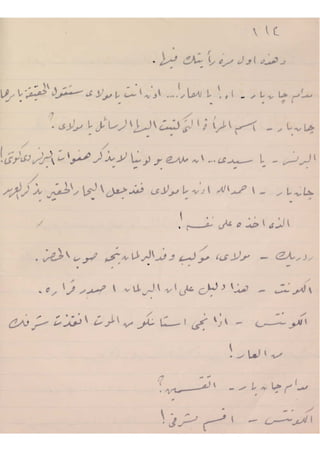 ١١٤
وهذه اول مرة رأيتك فيها.
مدام جان بار - اه! يا للعار!... اذن انت يا مولاى ستقول الحقيقة يا رها
جان بار - اسم المرأة التى كتبت اليها الرسائل يا مولاى؟
البرنس - يا سيدى.. ان ملك بولونيا لا يذكر هفوات البرنس دى كونتى!
جان بار - احمد الله اذن يا مولاى فقد جعل البحار الحقير يذكر العهد
الذى اخذه على نفسه!
رودريك - مولاى، موكب وفد البرلمان يتجه صوب الحصن.
الكونت - هذا دليل على ان البرلمان اصدر قراره.
الكونتس - اذا نجى استانكو من الموت انقذت شرفك
من العار!
مدام جان بار - اتقسمين؟
الكونتس - اقسم بشرفى!